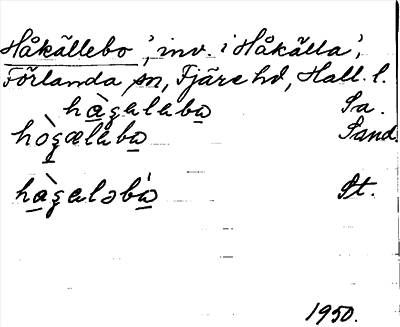 Håkällebo 'inv. i Håkälla',
Förlanda sn, Fjäre hd, Hall. l.
hàgalaba Sa.
hògælaba Sand.
hàgaləbá St.
1950.